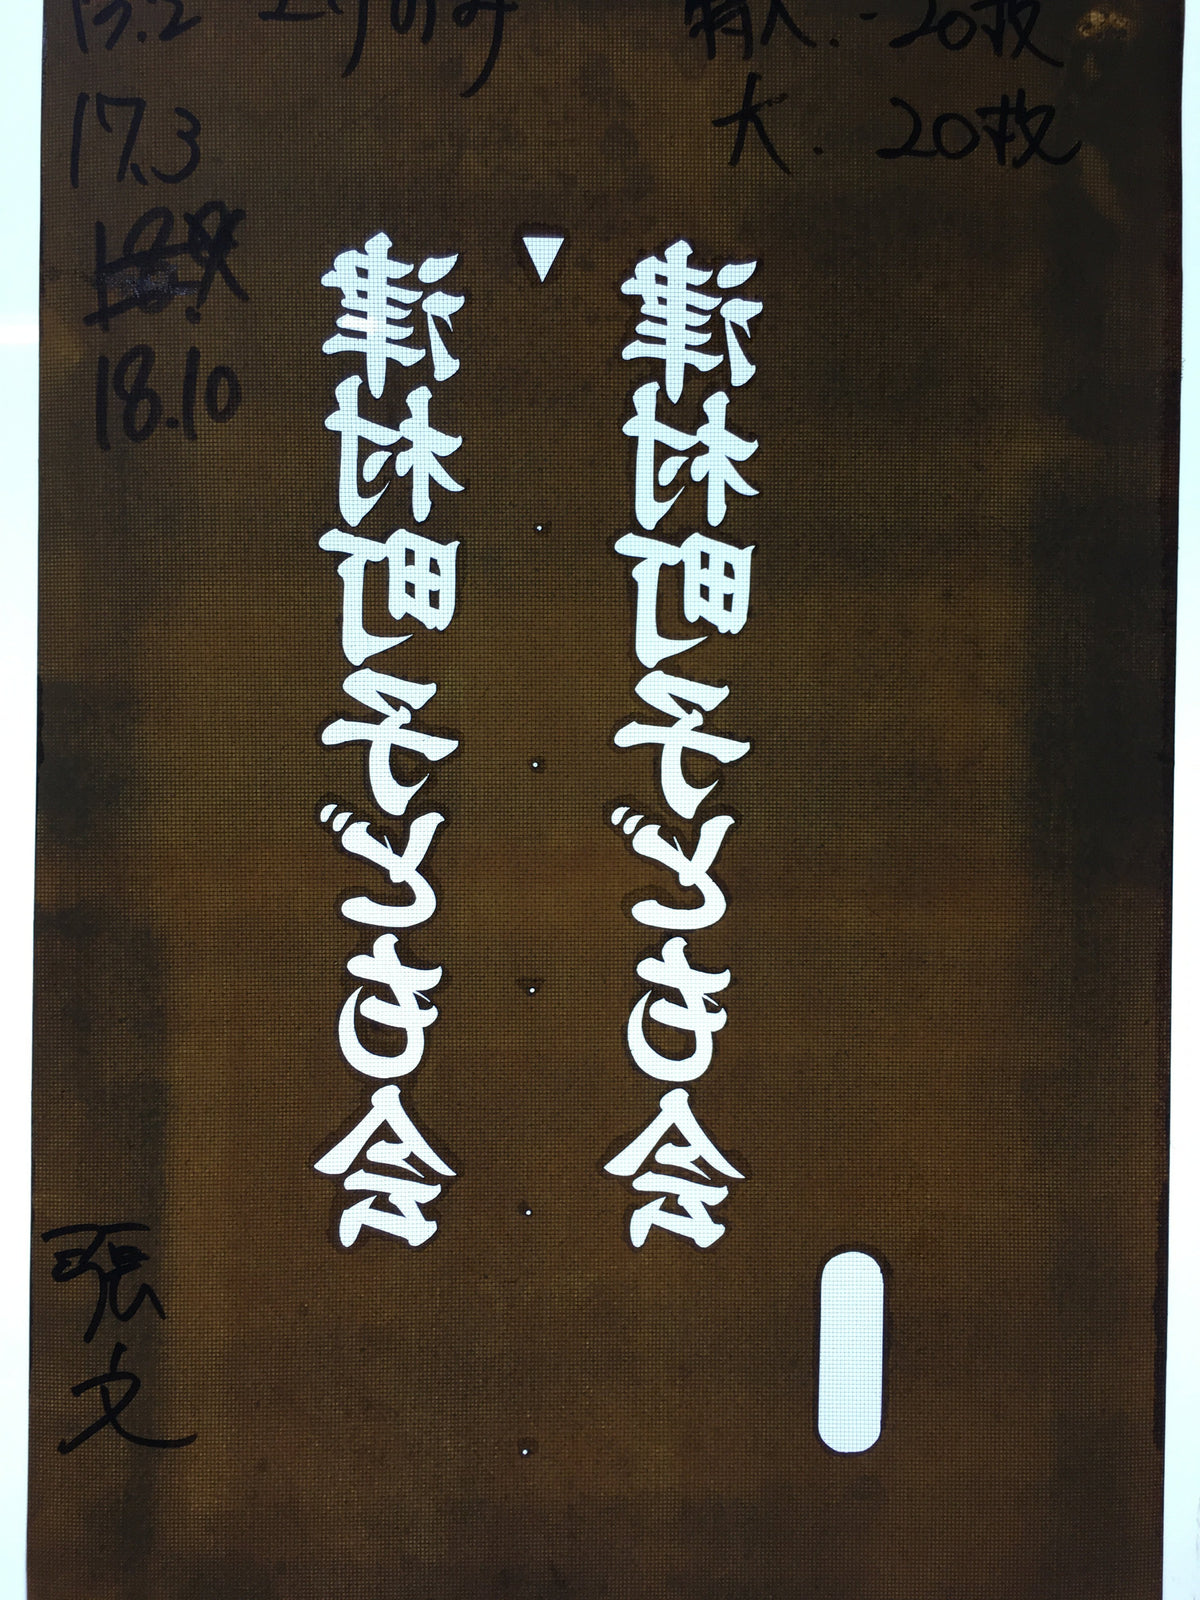 20枚
17.3
大. 20枚
18.10
津村町子ども会
津村町子ども会
張文